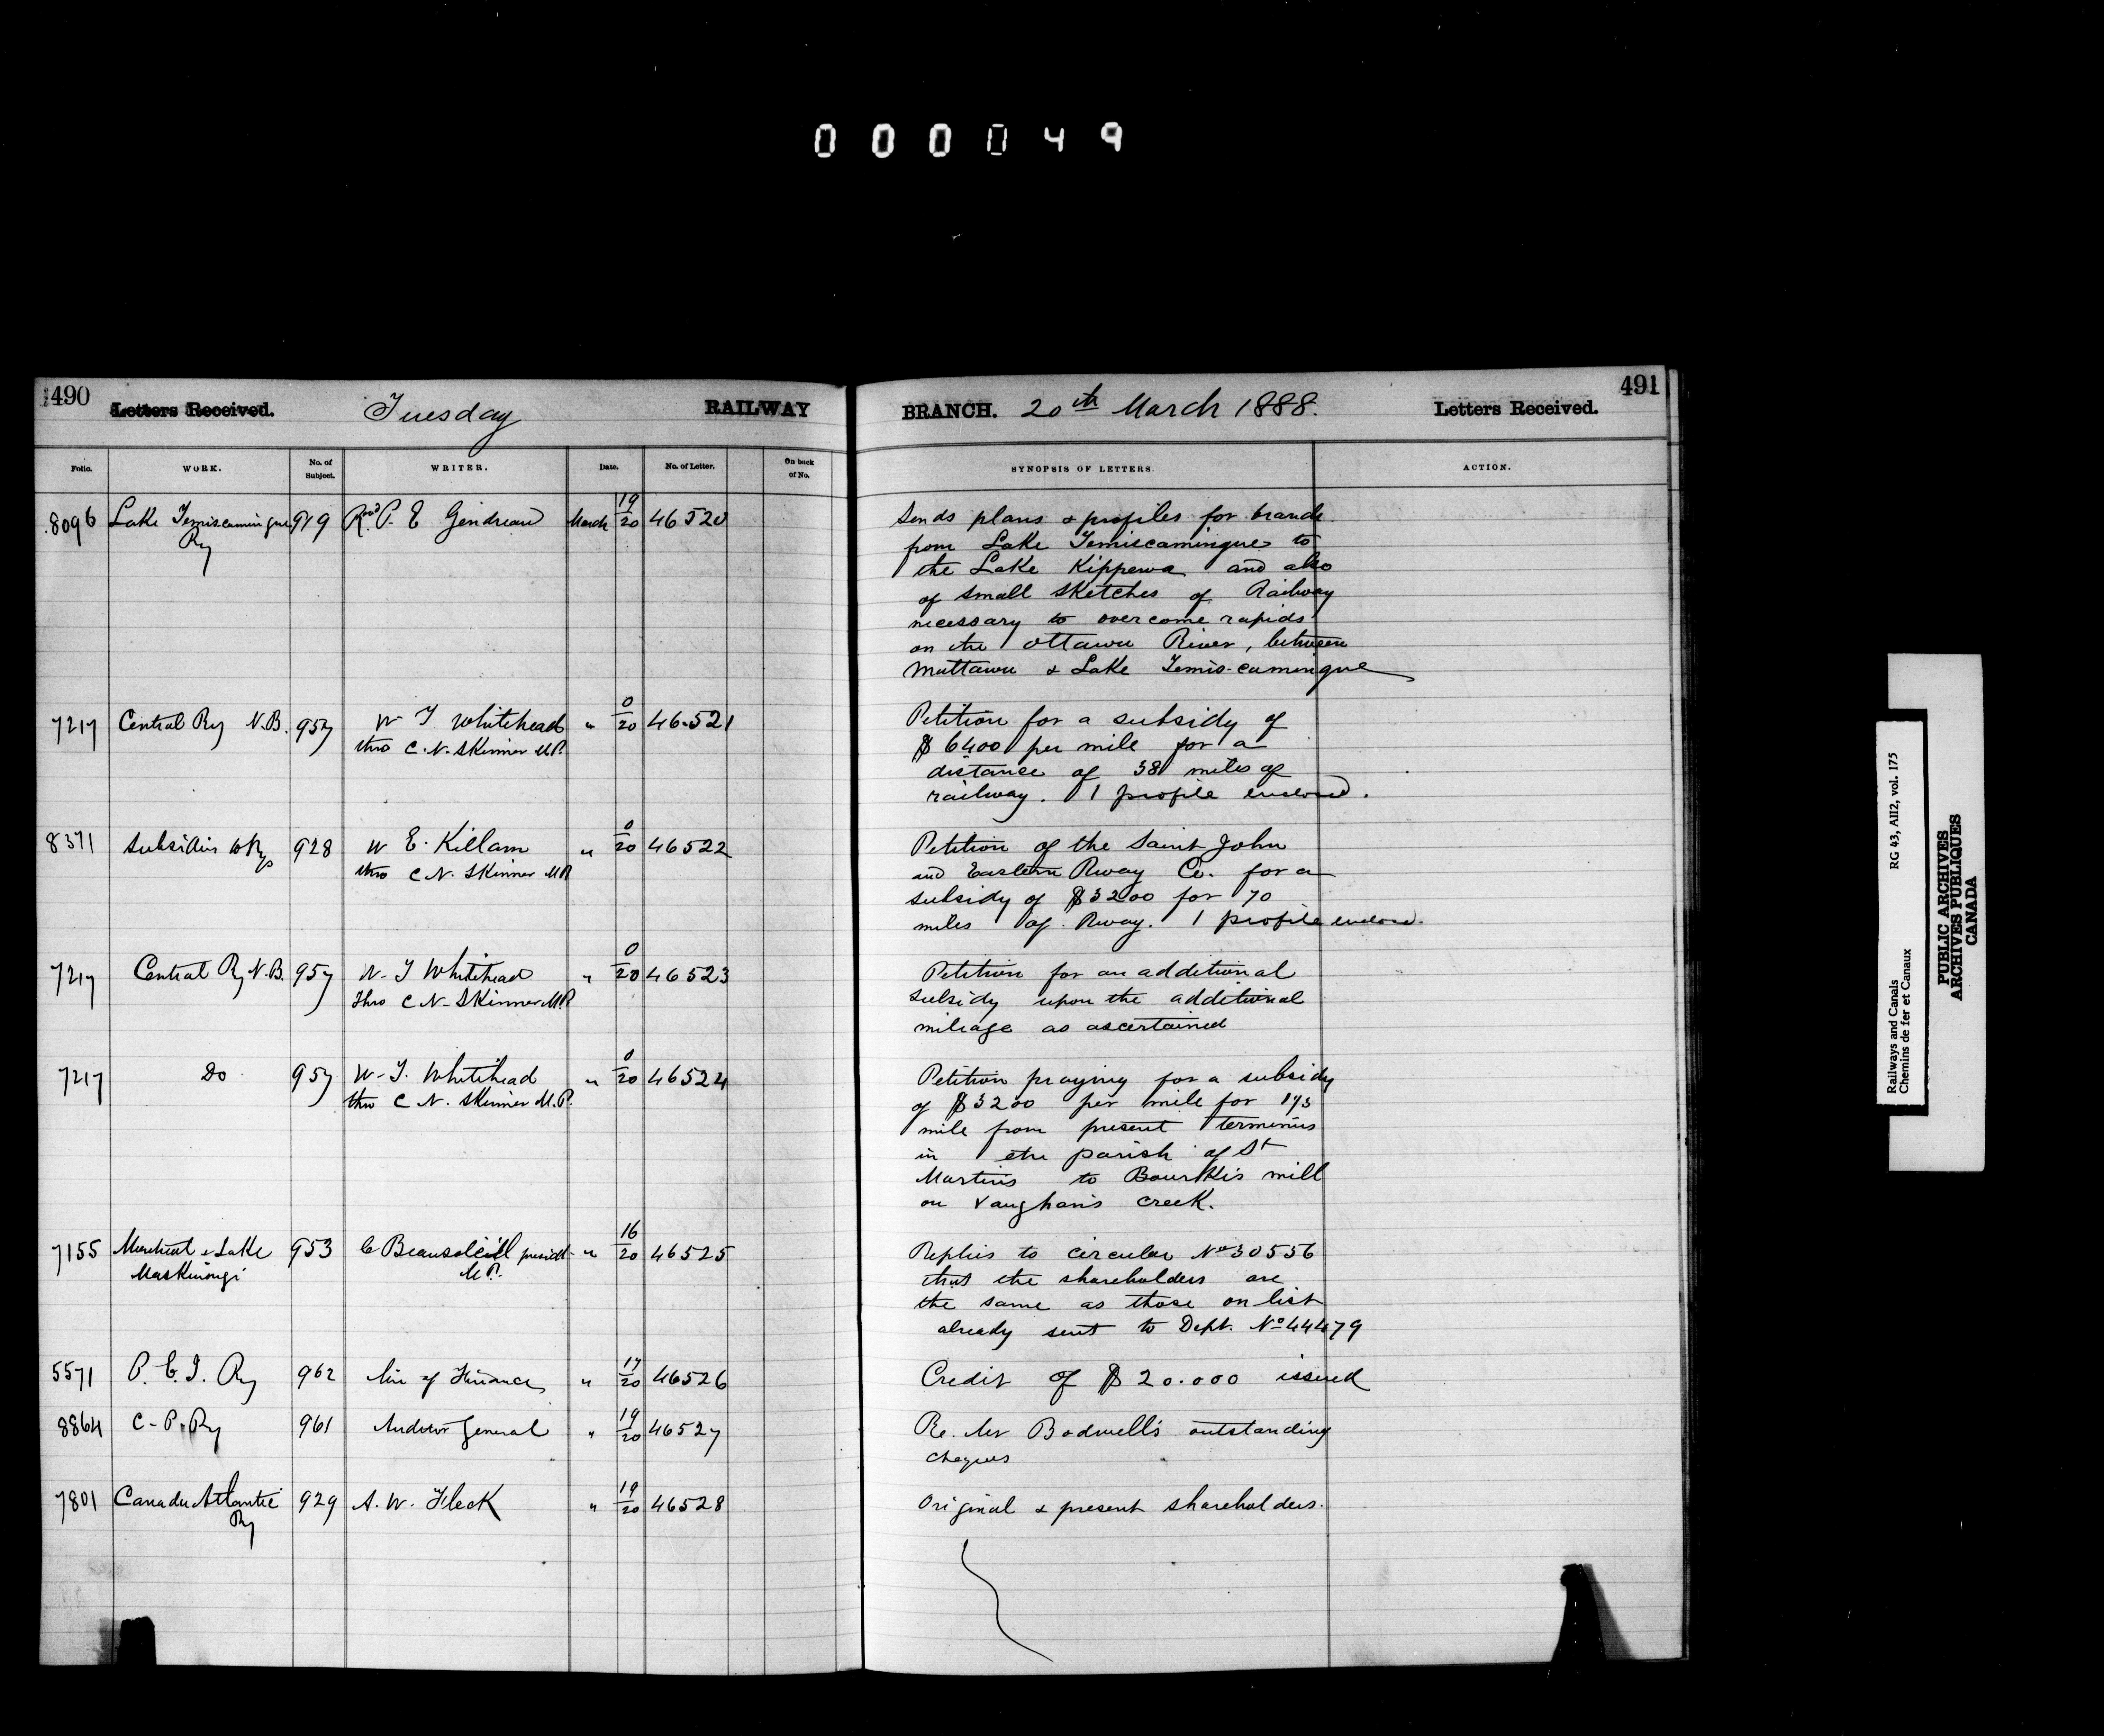 000049
490 Letters Received. Tuesday RAILWAY
BRANCH. 20th March 1888. Letters Received. 491
Folio. WORK. No. of Subject. WRITER. Date. No. of Letter. On back of No.
SYNOPSIS OF LETTERS. ACTION.
8096 Lake Temiscamingue Ry 919 Revd P. E Gendreau March 19/20 46520
Sends plans & profiles for branch
from Lake Temiscamingue to
the Lake Kippewa and also
of small sketches of Railway
necessary to overcome rapids
on the Ottawa River, between
Mattawa & Lake Temis-camingue
7217 Central Ry N.B. 957 W T Whitehead " 0/20 46521
thro C. N. Skinner M.P.
Petition for a subsidy of
$6400 per mile for a
distance of 38 miles of
railway. 1 profile enclosed.
8371 Subsidies to Rys 928 W E. Killam " 0/20 46522
thro C N. Skinner MP
Petition of the Saint John
and Eastern Rway Co. for a
subsidy of $3200 for 70
miles of Rway. 1 profile enclosed.
7217 Central Ry N.B. 957 W. T Whitehead " 0/20 46523
Thro C N. Skinner M.P.
Petition for an additional
subsidy upon the additional
mileage as ascertained
7217 Do 957 W. T. Whitehead " 0/20 46524
thro C N. Skinner M.P.
Petition praying for a subsidy
of $3200 per mile for
mile from present terminus
in the parish of St
Martins to Bourkis mill
on Vaughan's Creek.
7155 Montreal & Lake 953 C Beausoleil presidt " 16/20 46525
Maskinongi M.P.
Replies to circular No 30556
that the shareholders are
the same as those on list
already sent to Dept. No 44479
5571 P. E. I. Ry 962 Min of Finance " 17/20 46526
Credit of $20.000 issued
8864 C. P. Ry 961 Auditor General " 19/20 46527
Re. Mr Bodwell's outstanding
cheques
7801 Canada Atlantic Ry 929 A. W. Fleck " 19/20 46528
Original & present shareholders.
Railways and Canals RG 43, AII2, vol. 175
Chemins de fer et Canaux
PUBLIC ARCHIVES
ARCHIVES PUBLIQUES
CANADA